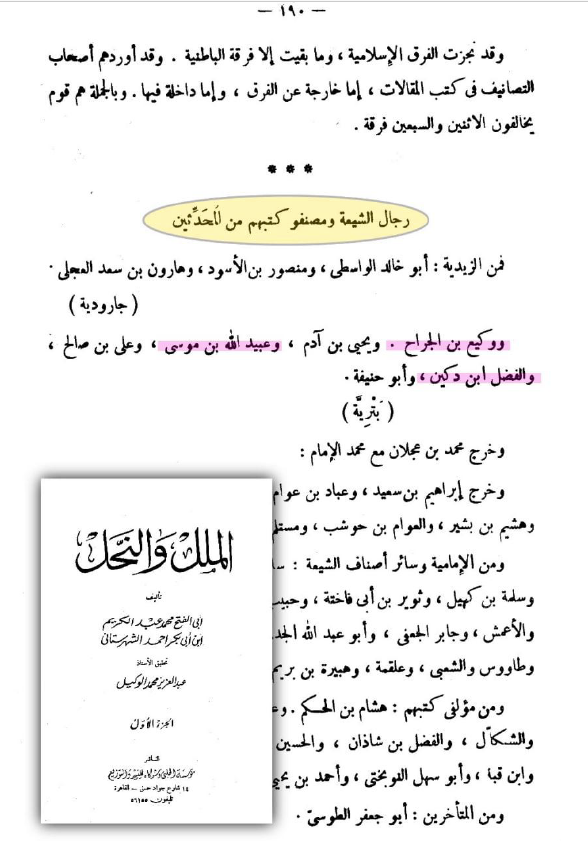 — ١٩٠ —
وقد نجزت الفرق الإسلامية ، وما بقيت إلا فرقة الباطنية . وقد أوردهم أصحاب
التصانيف فى كتب المقالات ، إما خارجة عن الفرق ، وإما داخلة فيها . وبالجملة هم قوم
يخالفون الاثنين والسبعين فرقة .
* * *
رجال الشيعة ومصنفو كتبهم من المحَدِّثين
فمن الزيدية : أبو خالد الواسطى ، ومنصور بن الأسود ، وهارون بن سعد العجلى .
( جارودية )
ووكيع بن الجراح . ويحيى بن آدم ، وعبيد الله بن موسى ، وعلى بن صالح ،
والفضل ابن دكين ، وأبو حنيفة .
( بَتْرِيَّة )
وخرج محمد بن عجلان مع محمد الإمام :
وخرج إبراهيم بن سعيد ، وعباد بن عوام
وهشيم بن بشير ، والعوام بن حوشب ، ومستلم
ومن الإمامية وسائر أصناف الشيعة :
وسلمة بن كهيل ، وثوير بن أبى فاختة ، وحبيب
والأعمش ، وجابر الجعفى ، وأبو عبد الله الجد
وطاووس والشعبى ، وعلقمة ، وهبيرة بن بريم
ومن مؤلفى كتبهم : هشام بن الحكم .
والشكال ، والفضل بن شاذان ، والحسين
وابن قبا ، وأبو سهل النوبختى ، وأحمد بن يحيى
ومن المتأخرين : أبو جعفر الطوسىّ .
الملل والنحل
تأليف
أبى الفتح محمد عبد الكريم
ابن أبى بكر أحمد الشهرستانى
تحقيق الأستاذ
عبد العزيز محمد الوكيل
الجزء الأول
الناشر
مؤسسة الحلبى وشركاه للنشر والتوزيع
١٤ شارع جواد حسنى - القاهرة
تليفون ٥٦١٥٥